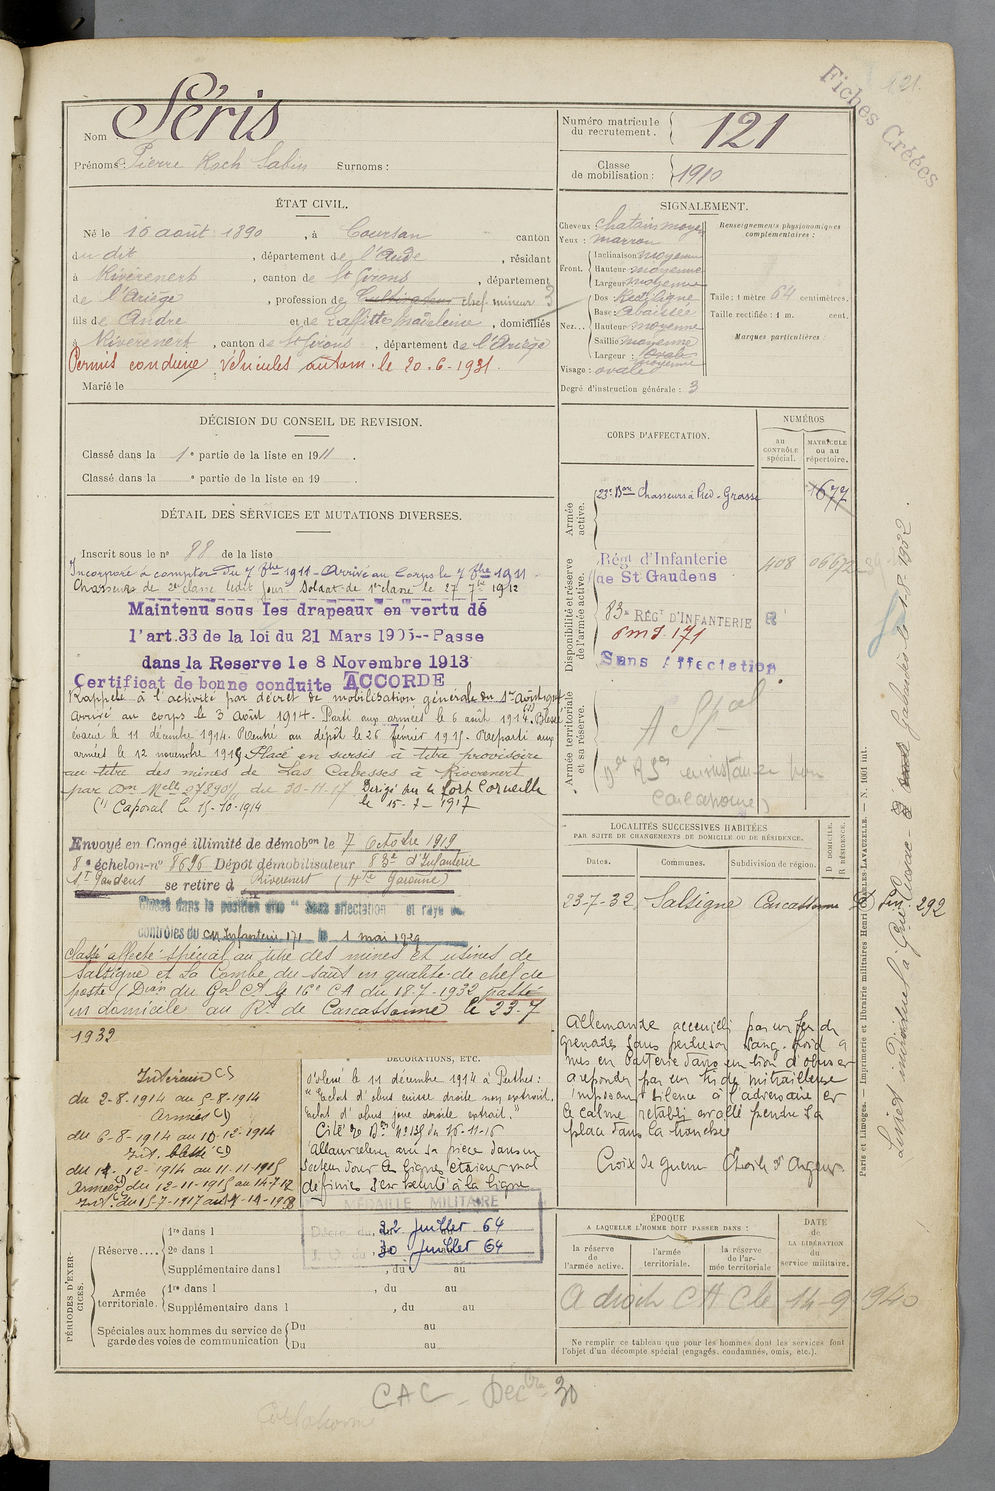 121.
Fiches Créées
Nom Séris
Prénoms: Pierre Roch Sabin Surnoms:
Numéro matricule du recrutement. 121
Classe de mobilisation: 1910
ÉTAT CIVIL.
Né le 16 août 1890, à Coursan canton
du dit, département de l'Aude, résidant
à Rivèrenert, canton de St Girons, département
de l'Ariège, profession de Cultivateur chef mineur 3
fils de André et de Laffitte Madeleine, domiciliés
à Rivèrenert, canton de St Girons, département de l'Ariège
Permis conduire véhicules autom. le 20.6.1931.
Marié le
SIGNALEMENT.
Cheveux chatain moyen
Yeux: marron
Front. Inclinaison moyenne
Hauteur moyenne
Largeur moyenne
Nez... Dos: Rectiligne
Base: abaissée
Hauteur moyenne
Saillie moyenne
Largeur: moyenne
Visage: ovale
Degré d'instruction générale: 3
Renseignements physionomiques complémentaires:
Taille: 1 mètre 64 centimètres.
Taille rectifiée: 1 m. cent.
Marques particulières:
DÉCISION DU CONSEIL DE REVISION.
Classé dans la 1e partie de la liste en 1911.
Classé dans la e partie de la liste en 19 .
DÉTAIL DES SERVICES ET MUTATIONS DIVERSES.
Inscrit sous le no 88 de la liste
Incorporé à compter du 7 8bre 1911 - Arrivé au Corps le 7 8bre 1911
Chasseur de 2e classe ledit jour. Soldat de 1e classe le 27 7bre 1912
Maintenu sous les drapeaux en vertu de
l'art.33 de la loi du 21 Mars 1905--Passe
dans la Reserve le 8 Novembre 1913
Certificat de bonne conduite ACCORDE
Rappelé à l'activité par décret de mobilisation générale du 1er Août 1914
Arrivé au corps le 3 Août 1914. Parti aux armées le 6 août 1914. (1) Blessé
évacué le 11 décembre 1914. Rentré au dépôt le 26 février 1915. Reparti aux
armées le 12 novembre 1915 Placé en sursis à titre provisoire
au titre des mines de Las Cabesses à Rivèrenert
par Don Melle 27890/ du 30-11-17 Dirigé sur le Fort Corneille
(1) Caporal le 15-10-1914 le 15-7-1917
Envoyé en Congé illimité de démobon le 7 Octobre 1919
8e échelon-no 8696 Dépôt démobilisateur 83e d'Infanterie
St Gaudens se retire à Rivèrenert (Hte Garonne)
Classé dans la position dite "Sans affectation" et rayé des
contrôles du CM Infanterie 171 le 1 mai 1929
Classé affecté spécial au titre des mines et usines de
Salsigne et La Combe du Saut en qualité de chef de
poste (Dion du Gal Ct le 16e CA du 18-7-1932 passé
en domicile au Rt de Carcassonne le 23-7
1932
CORPS D'AFFECTATION.
NUMÉROS
au CONTRÔLE spécial.
MATRICULE ou au répertoire.
Armée active.
23e Bon Chasseurs à Pied - Grasse
1677
Disponibilité et réserve de l'armée active.
Régt d'Infanterie 408 0667
de St Gaudens
83e RÉGT D'INFANTERIE
C M I. 171
Sans Affectation
Armée territoriale et sa réserve.
A Spal
Carcassonne
LOCALITÉS SUCCESSIVES HABITÉES
PAR SUITE DE CHANGEMENTS DE DOMICILE OU DE RÉSIDENCE.
Dates. Communes. Subdivision de région.
D DOMICILE. R RÉSIDENCE.
23-7-32 Salsigne Carcassonne D 292
Paris et Limoges. — Imprimerie et librairie militaires Henri CHARLES-LAVAUZELLE. — N. 1001 int.
Intérieur CS
du 2-8-1914 au 5-8-1914
Armées CD
du 6-8-1914 au 10-12-1914
Int. blessé CD
du 11-12-1914 au 11-11-1915
Armées CD du 12-11-1915 au 14-7-17
DÉCORATIONS, ETC.
Blessé le 11 décembre 1914 à Perthes:
"Éclat d'obus cuisse droite non extrait.
Éclat d'obus joue droite extrait."
Cité
définies s'est heurté à la ligne
Allemande accueilli par un feu de
grenades sans perdre son sang-froid a
mis en batterie dans un trou d'obus et
a répondu par un tir de mitrailleuse
imposant silence à l'adversaire et
le calme rétabli est allé prendre sa
place dans la tranchée
Croix de guerre Étoile d'Argent
MÉDAILLE MILITAIRE
Décret du 22 juillet 64
J. O. du 30 juillet 64
PÉRIODES D'EXERCICES.
Réserve.... 1re dans l
2e dans l
Supplémentaire dans l , du au
Armée territoriale. 1re dans l , du au
Supplémentaire dans l , du au
Spéciales aux hommes du service de garde des voies de communication Du au
Du au
ÉPOQUE
A LAQUELLE L'HOMME DOIT PASSER DANS:
la réserve de l'armée active.
l'armée territoriale.
la réserve de l'armée territoriale
DATE de LA LIBÉRATION du service militaire.
A droit CA Cle 14-9-1940
Ne remplir ce tableau que pour les hommes dont les services font
l'objet d'un décompte spécial (engagés, condamnés, omis, etc.).
CAC - Dec 30